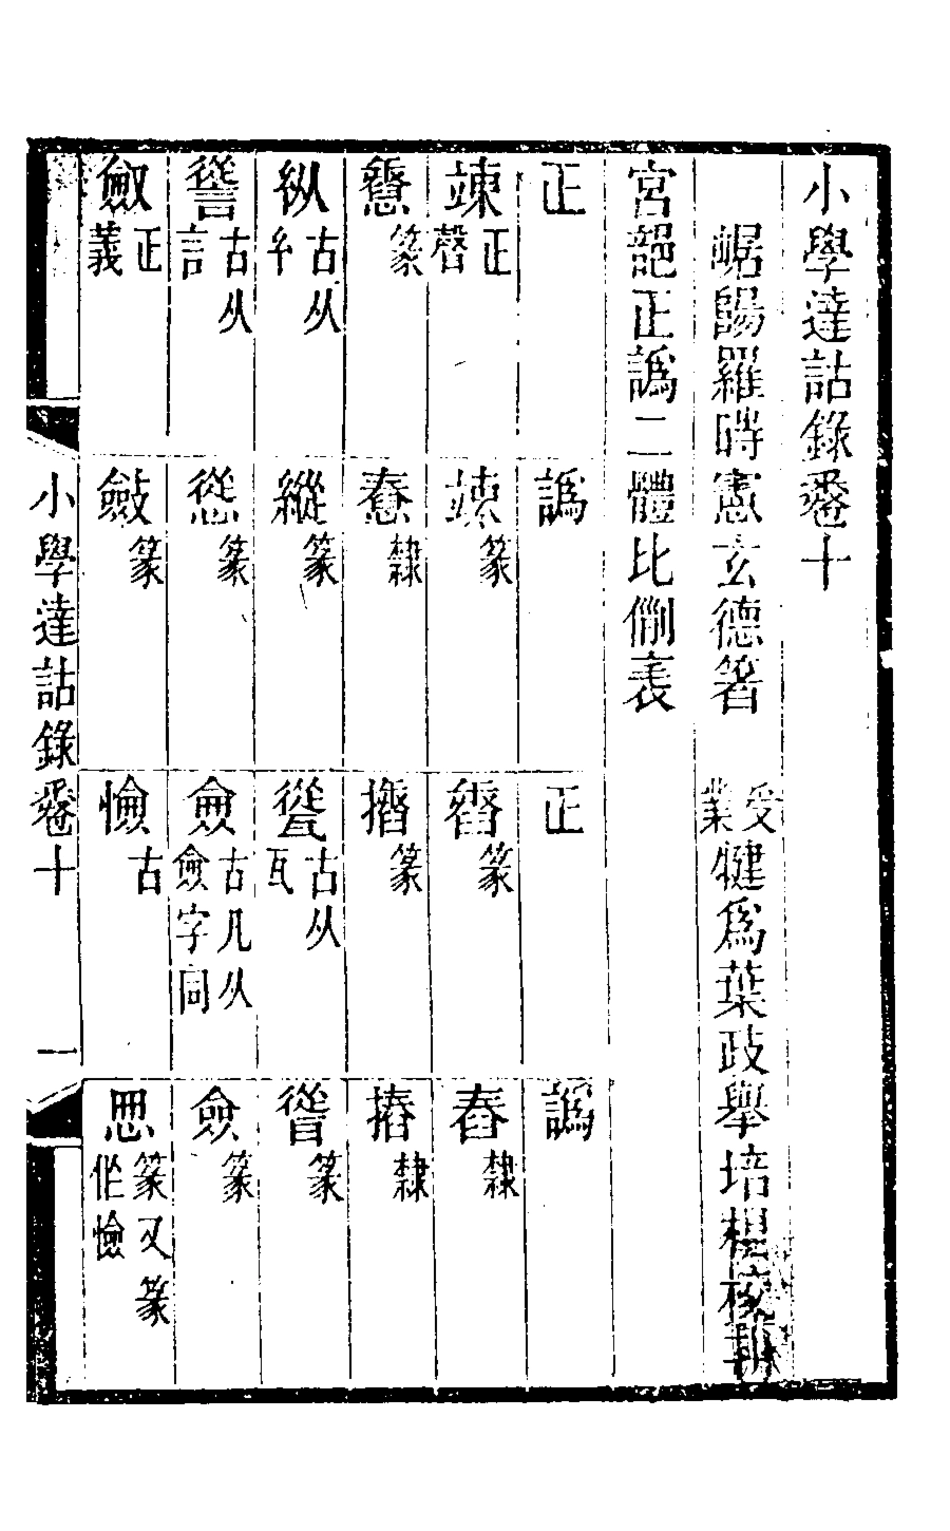 小學達詁錄卷十
崌陽羅時憲玄德箸 受業犍爲葉政舉培根校
宮部正譌二體比例表
正
譌
正
譌
竦 正聲
竦 篆
篆
舂 隸
惷 篆
惷 隸
篆
摏 隸
纵 古从糸
縱 篆
古从瓦
篆
古从言
慫 篆
僉 古凡从僉字同
僉 篆
正義
斂 篆
憸 古
思 篆又篆作憸
小學達詁錄卷十
一